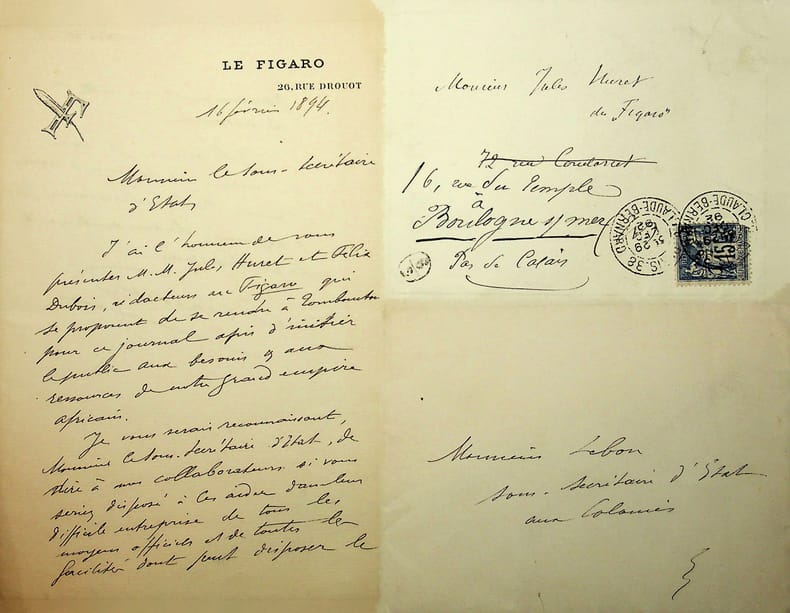 LE FIGARO
26, RUE DROUOT
16 février 1894.
Monsieur le Sous-Secrétaire
d'Etat
J'ai l'honneur de vous
présenter M.M. Jules Huret et Felix
Dubois, rédacteurs au Figaro qui
se proposent de se rendre à Tombouctou
pour ce journal afin d'initier
le public aux besoins & aux
ressources de notre grand empire
africain.
Je vous serais reconnaissant,
Monsieur le Sous-Secrétaire d'Etat, de
dire à mes collaborateurs si vous
seriez disposé à les aider dans leur
difficile entreprise de tous les
moyens officiels et de toutes les
facilités dont peut disposer le
Monsieur Jules Huret
du "Figaro"
72 rue Condorcet
16, rue du Temple
à
Boulogne s/ mer
Pas de Calais
CLAUDE-BERNARD
CLAUDE-BERNARD
15
Monsieur Lebon
sous-secrétaire d'Etat
aux Colonies